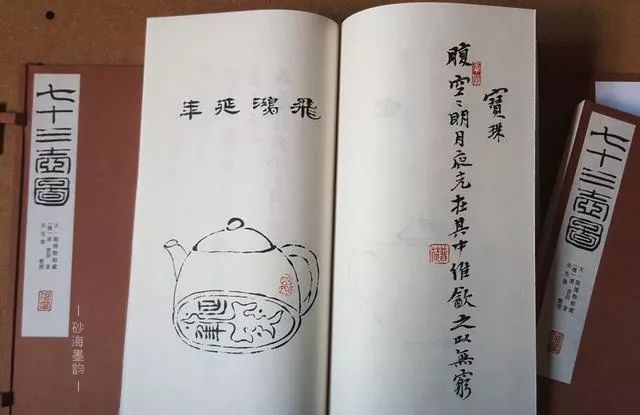 七十三壺圖
飛鴻延年
寶珠
腹空〻明月夜光在其中惟㱃之以無窮
七十三壺圖
砂海墨韵